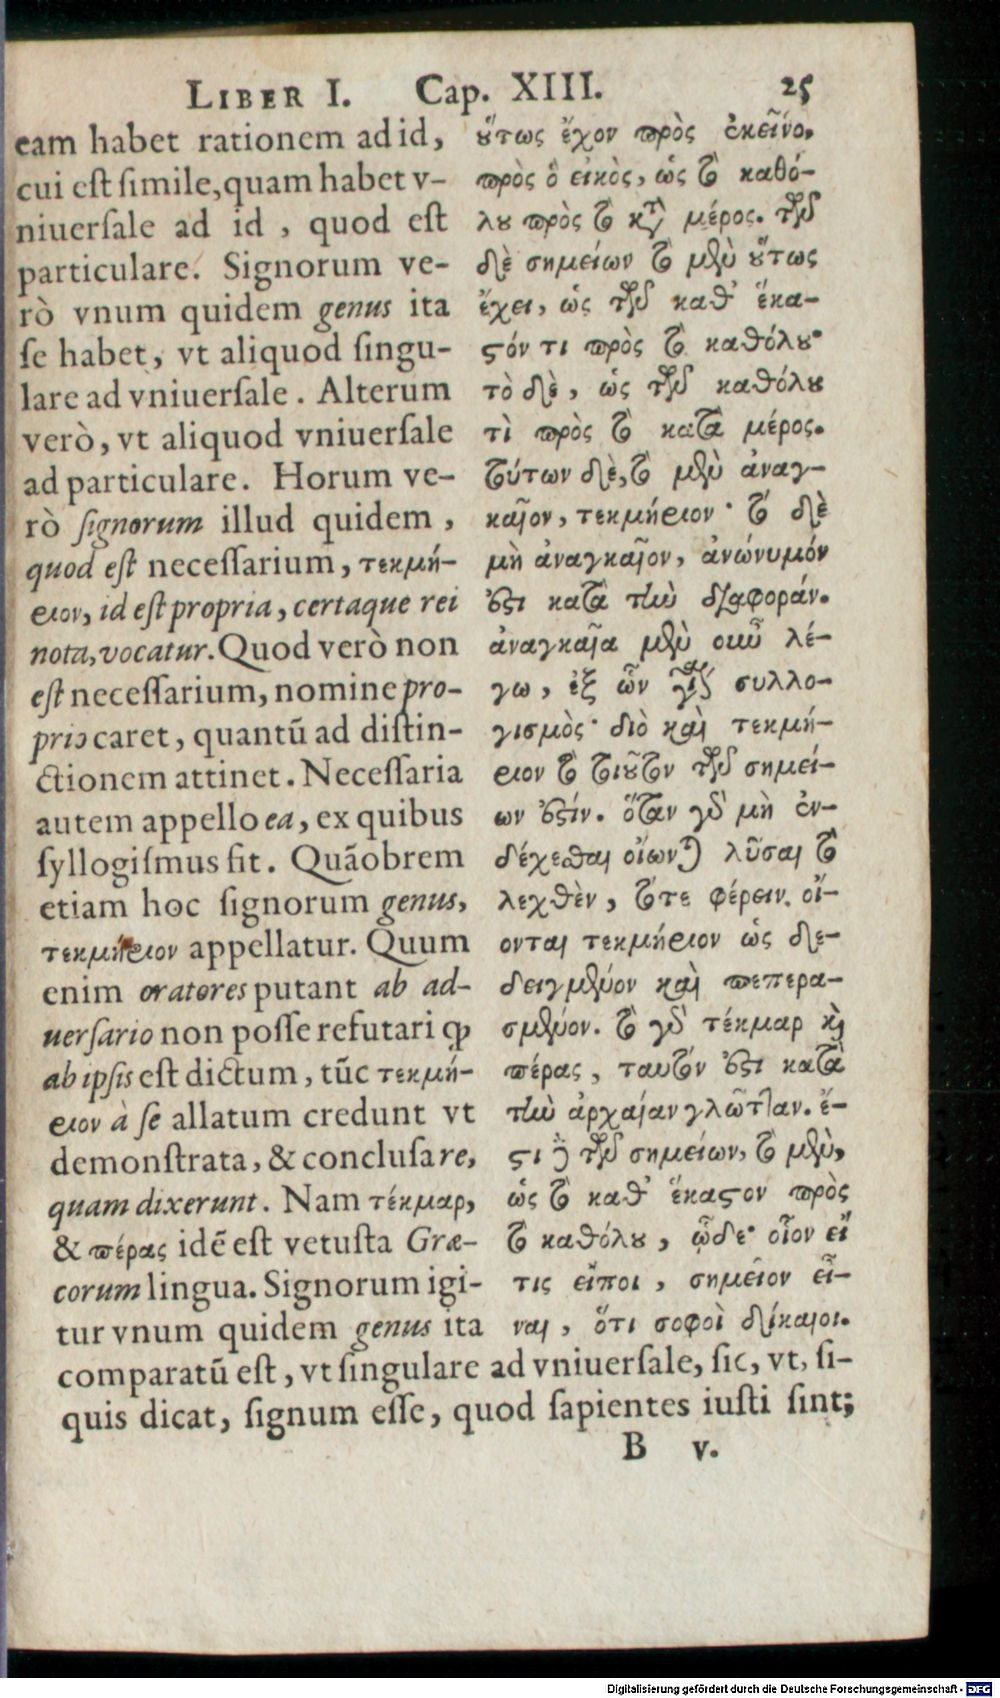 LIBER I. Cap. XIII. 25
eam habet rationem ad id,
cui est simile, quam habet v-
niuersale ad id, quod est
particulare. Signorum ve-
rò vnum quidem genus ita
se habet, vt aliquod singu-
lare ad vniuersale. Alterum
verò, vt aliquod vniuersale
ad particulare. Horum ve-
rò signorum illud quidem,
quod est necessarium, τεκμή-
ριον, id est propria, certaque rei
nota, vocatur. Quod verò non
est necessarium, nomine pro-
prio caret, quantū ad distin-
ctionem attinet. Necessaria
autem appello ea, ex quibus
syllogismus fit. Quāobrem
etiam hoc signorum genus,
τεκμήριον appellatur. Quum
enim oratores putant ab ad-
uersario non posse refutari ꝙ
ab ipsis est dictum, tūc τεκμή-
ριον à se allatum credunt vt
demonstrata, & conclusa re,
quam dixerunt. Nam τέκμαρ,
& πέρας idē est vetusta Græ-
corum lingua. Signorum igi-
tur vnum quidem genus ita
comparatū est, vt singulare ad vniuersale, sic, vt, si-
quis dicat, signum esse, quod sapientes iusti sint;
ȣ̔́τως ἔχον πρὸς ἐκεῖνο,
πρὸς ὃ εἰκὸς, ὡς τὸ καθό-
λȣ πρὸς τὸ κτ̀ μέρος. τῶν
δὲ σημείων τὸ μὲν ȣ̔́τως
ἔχει, ὡς τῶν καθ' ἕκα-
στόν τι πρὸς τὸ καθόλȣ·
τὸ δὲ, ὡς τῶν καθόλȣ
τὶ πρὸς τὸ κατὰ μέρος.
τούτων δὲ, τὸ μὲν ἀναγ-
καῖον, τεκμήριον· τὸ δὲ
μὴ ἀναγκαῖον, ἀνώνυμόν
ἐστι κατὰ τὴν διαφοράν.
ἀναγκαῖα μὲν οὖν λέ-
γω, ἐξ ὧν γίνεται συλλο-
γισμὸς· διὸ καὶ τεκμή-
ριον τὸ τοιοῦτον τῶν σημεί-
ων ἐστίν. ὅταν γὸ μὴ ἐν-
δέχεσθαι οἴωνται λῦσαι τὸ
λεχθὲν, τότε φέρειν οἴ-
ονται τεκμήριον ὡς δε-
δειγμένον καὶ πεπερα-
σμένον. τὸ γὸ τέκμαρ κὶ
πέρας, ταυτόν ἐστι κατὰ
τὴν ἀρχαίαν γλῶτταν. ἔ-
στι ἢ τῶν σημείων, τὸ μὲν,
ὡς τὸ καθ' ἕκαστον πρὸς
τὸ καθόλȣ, ὧδε· οἷον εἴ
τις εἴποι, σημεῖον εἶ-
ναι, ὅτι σοφοὶ δίκαιοι.
B v.
Digitalisierung gefördert durch die Deutsche Forschungsgemeinschaft - DFG